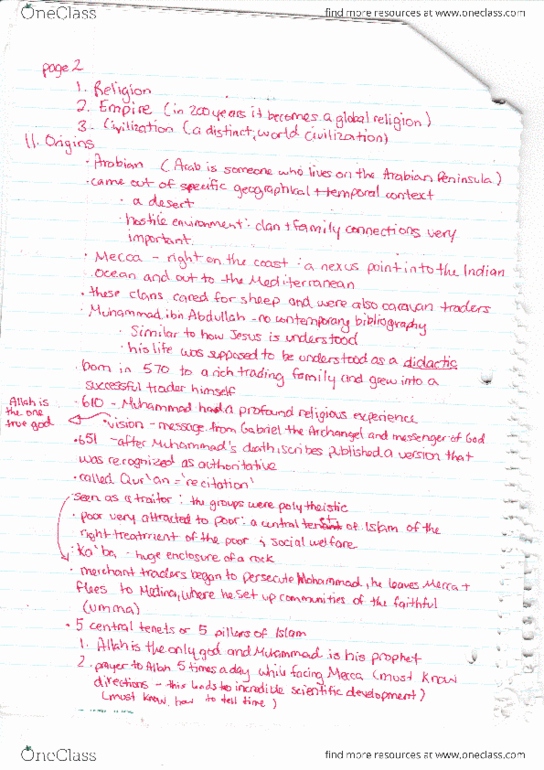 OneClass
find more resources at www.oneclass.com
page 2
1. Religion
2. Empire (in 200 years it becomes a global religion)
3. Civilization (a distinct, world civilization)
II. Origins
• Arabian (Arab is someone who lives on the Arabian Peninsula)
• came out of specific geographical + temporal context
• a desert
• hostile environment: clan + family connections very
important.
• Mecca - right on the coast: a nexus point into the Indian
Ocean and out to the Mediterranean
• these clans cared for sheep and were also caravan traders
• Muhammad ibin Abdullah - no contemporary bibliography
• Similar to how Jesus is understood
• his life was supposed to be understood as a didactic
• born in 570 to a rich trading family and grew into a
successful trader himself
• 610 - Muhammad had a profound religious experience
Allah is
the one
true god
• vision - message from Gabriel the Archangel and messenger of God
• 651 - after Muhammad's death, scribes published a version that
was recognized as authoritative
• called Qur'an = 'recitation'
• seen as a traitor: the groups were polytheistic
• poor very attracted to poor: a central of Islam of the
right treatment of the poor, social welfare
• Ka'ba - huge enclosure of a rock
• merchant traders began to persecute Mohammad, he leaves Mecca +
flees to Medina, where he set up communities of the faithful
(umma)
• 5 central tenets or 5 pillars of Islam
1. Allah is the only god and Muhammad is his prophet
2. prayer to Allah 5 times a day while facing Mecca (must know
directions - this leads to incredible scientific development)
(must know how to tell time)
OneClass
find more resources at www.oneclass.com